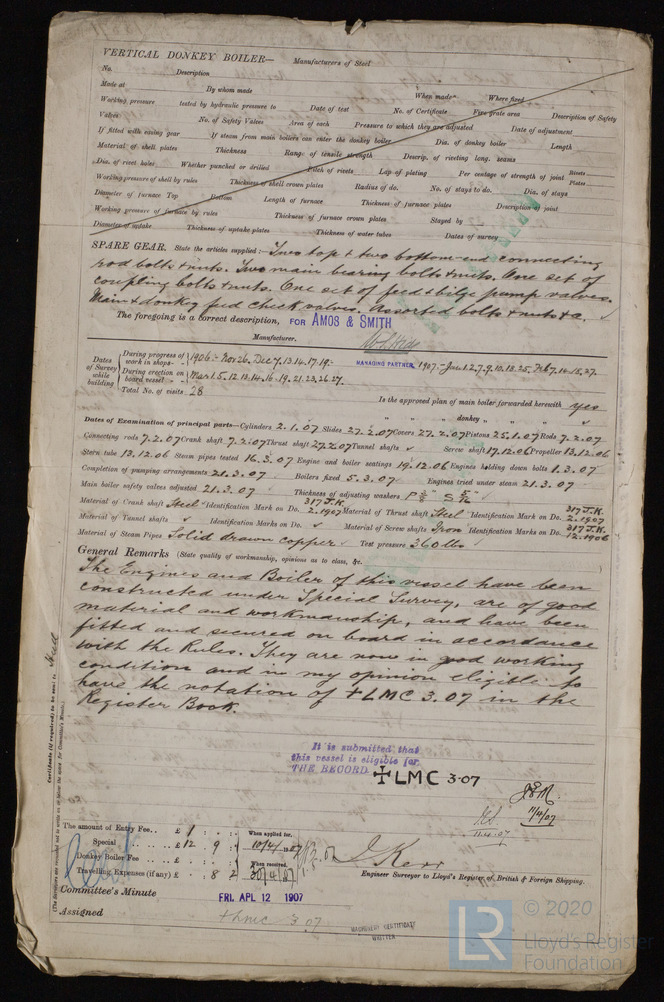 VERTICAL DONKEY BOILER— Manufacturers of Steel
No. Description
Made at By whom made When made Where fixed
Working pressure tested by hydraulic pressure to Date of test No. of Certificate Fire grate area Description of Safety
Valves No. of Safety Valves Area of each Pressure to which they are adjusted Date of adjustment
If fitted with easing gear If steam from main boilers can enter the donkey boiler Dia. of donkey boiler Length
Material of shell plates Thickness Range of tensile strength Descrip. of riveting long. seams
Dia. of rivet holes Whether punched or drilled Pitch of rivets Lap of plating Per centage of strength of joint Rivets Plates
Working pressure of shell by rules Thickness of shell crown plates Radius of do. No. of stays to do. Dia. of stays
Diameter of furnace Top Bottom Length of furnace Thickness of furnace plates Description of joint
Working pressure of furnace by rules Thickness of furnace crown plates Stayed by
Diameter of uptake Thickness of uptake plates Thickness of water tubes Dates of survey
SPARE GEAR. State the articles supplied:— Two top & two bottom-end connecting
rod bolts & nuts. Two main bearing bolts & nuts. One set of
coupling bolts & nuts. One set of feed & bilge pump valves.
Main & donkey feed check valves. Assorted bolts & nuts &c.
The foregoing is a correct description, FOR AMOS & SMITH
Manufacturer.
MANAGING PARTNER
Dates of Survey while building
During progress of work in shops- 1906:- Nov 26. Dec 7.13.14.17.19:- 1907:- Jan 1.2.7.9.10.13.25. Feb 7.14.15.27.
During erection on board vessel Mar 1.5.12.13.14.16.19.21.23.26.27.
Total No. of visits 28
Is the approved plan of main boiler forwarded herewith yes
" " " donkey " " "
Dates of Examination of principal parts—Cylinders 2.1.07 Slides 27.2.07 Covers 27.2.07 Pistons 25.1.07 Rods 7.2.07
Connecting rods 7.2.07 Crank shaft 7.2.07 Thrust shaft 27.2.07 Tunnel shafts ✓ Screw shaft 17.12.06 Propeller 13.12.06
Stern tube 13.12.06 Steam pipes tested 16.3.07 Engine and boiler seatings 19.12.06 Engines holding down bolts 1.3.07
Completion of pumping arrangements 21.3.07 Boilers fixed 5.3.07 Engines tried under steam 21.3.07
Main boiler safety valves adjusted 21.3.07 Thickness of adjusting washers
Material of Crank shaft Steel Identification Mark on Do. 317 J.K. 2.1907 Material of Thrust shaft Steel Identification Mark on Do. 317 J.K. 2.1907
Material of Tunnel shafts ✓ Identification Marks on Do. ✓ Material of Screw shafts Iron Identification Marks on Do. 317 J.K. 12.1906
Material of Steam Pipes Solid drawn copper ✓ Test pressure 360 lbs ✓
General Remarks (State quality of workmanship, opinions as to class, &c.
The Engines and Boiler of this vessel have been
constructed under Special Survey, are of good
material and workmanship, and have been
fitted and secured on board in accordance
with the Rules. They are now in good working
condition and in my opinion eligible to
have the notation of +LMC 3.07 in the
Register Book.
Certificate (if required) to be sent to Hull
(The Surveyors are requested not to write on or below the space for Committee's Minute.)
It is submitted that
this vessel is eligible for
THE RECORD +LMC 3.07
11/4/07
11.4.07
The amount of Entry Fee.. £ 1 : : When applied for,
Special .. £ 12 : 9 : 10/4/1907
Donkey Boiler Fee .. £ : : When received,
Travelling Expenses (if any) £ : 8 : 2
J. Kerr
Engineer Surveyor to Lloyd's Register of British & Foreign Shipping.
Committee's Minute FRI. APL 12 1907
Assigned + LMC 3.07
MACHINERY CERTIFICATE
WRITTEN
LR
© 2020
Lloyd's Register
Foundation